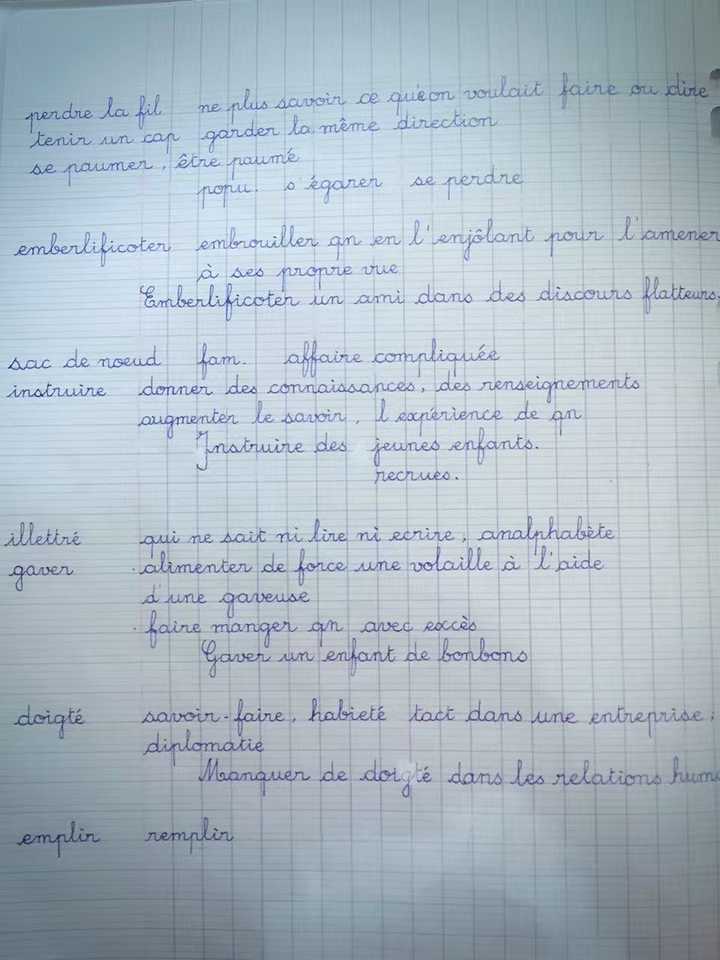 perdre la fil ne plus savoir ce qu'on voulait faire ou dire
tenir un cap garder la même direction
se paumer, être paumé
popu. s'égarer se perdre
emberlificoter embrouiller qn en l'enjôlant pour l'amener
à ses propre vue
Emberlificoter un ami dans des discours flatteurs.
sac de noeud fam. affaire compliquée
instruire donner des connaissances, des renseignements
augmenter le savoir, l'expérience de qn
Instruire des jeunes enfants.
recrues.
illettré qui ne sait ni lire ni ecrire, analphabète
gaver · alimenter de force une volaille à l'aide
d'une gaveuse
· faire manger qn avec excès
Gaver un enfant de bonbons
doigté savoir-faire, habieté tact dans une entreprise,
diplomatie
Manquer de doigté dans les relations hum
emplir remplir